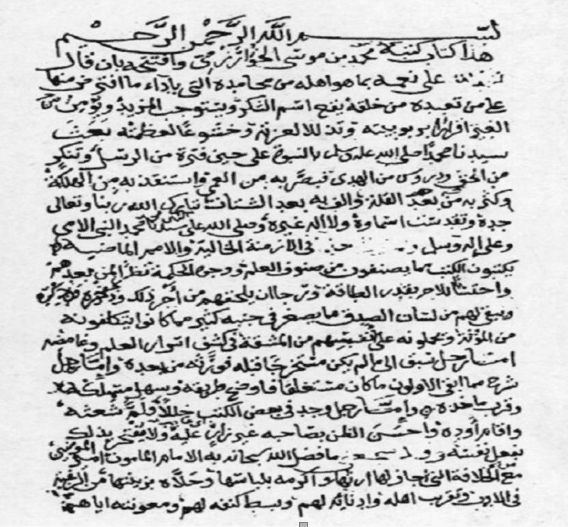 بسم الله الرحمن الرحيم
هذا كتاب كتبه محمد بن موسى الخوارزمي وافتتحه بان قال
على نعمه بما هو اهله من محامده التي باداء ما افترض منها
على من تعبده من خلقه يقع اسم الشكر ويستوجب المزيد ويؤمن من
الغير اقرارا بربوبيته وتذللا لعزته وخشوعا لعظمته بعث
سيدنا محمدا صلى الله عليه وسلم بالنبوة على حين فترة من الرسل وتنكر
من الحق ودروس من الهدى فبصر به من العمى واستنقذ به من الهلكة
وكثر به من بعد القلة والف به بعد الشتات تبارك الله ربنا وتعالى
جده وتقدست اسماؤه ولا اله غيره وصلى الله على سيدنا محمد النبي الامي
وعلى اله وسلم في الازمنة الخالية والامم الماضية
يكتبون الكتب مما يصنفون من صنوف العلم ووجوه الحكمة نظرا لمن بعدهم
واحتسابا للاجر بقدر الطاقة ورجا ان يلحقهم من اجر ذلك وذخره وذكره
ويبقى لهم من لسان الصدق ما يصغر في جنبه كثير مما كانوا يتكلفونه
من المؤنة ويحملونه على انفسهم من المشقة في كشف اسرار العلم وغامضه
اما رجل سبق الى ما لم يكن مستخرجا قبله فورثه من بعده واما رجل
شرح مما ابقى الاولون ما كان مستغلقا فاوضح طريقه وسهل مسلكه
وقرب ماخذه واما رجل وجد في بعض الكتب خللا فلم شعثه
واقام اوده واحسن الظن بصاحبه غير زار عليه ولا مفتخر بذلك
بفعل نفسه ما فضل الله سبحانه به الامام المامون امير المؤمنين
مع الخلافة التي له ارثها واكرمه بلباسها وحلاه بزينتها من الرغبة
في الادب وتقريب اهله وادنائهم لهم وبسط كنفه لهم ومعونته اياهم